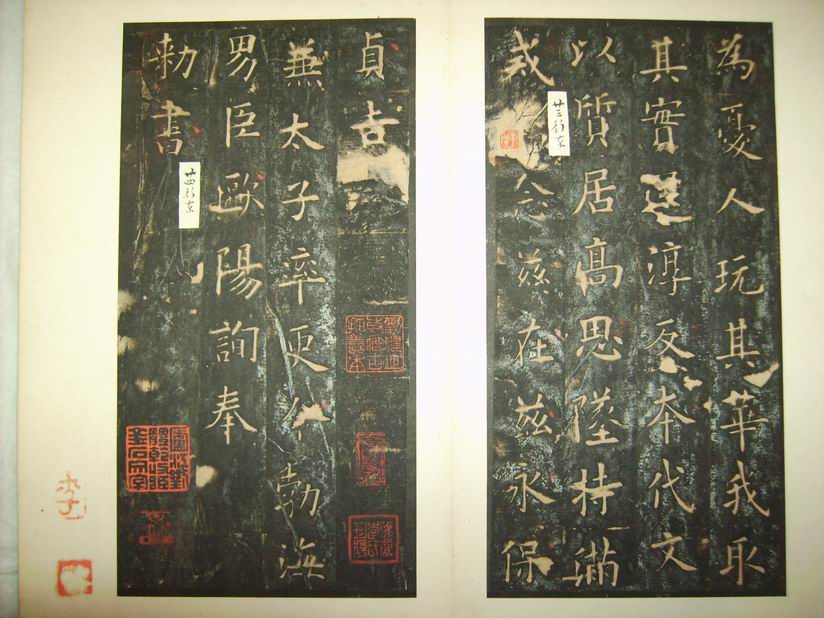 為憂人玩其華我取
其實還淳反本代文
以質居高思墜持滿
戒 念茲在茲永保
廿三行末
貞吉
兼太子率更令勃海
男臣歐陽詢奉
勅書
廿四行末